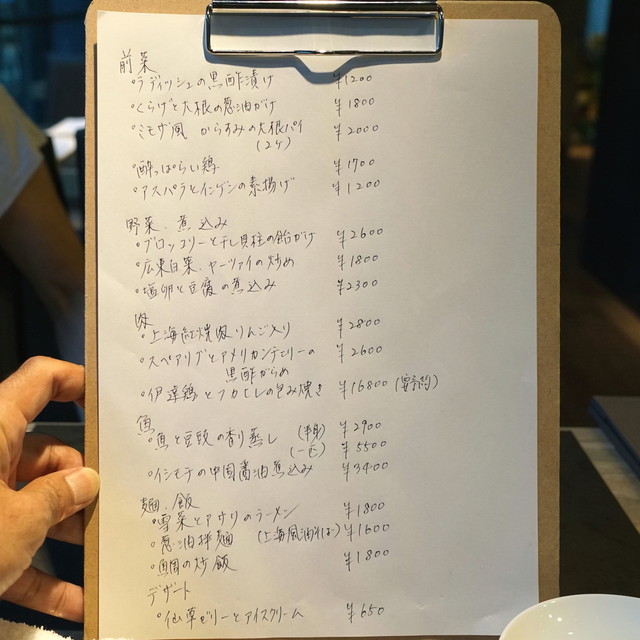 前菜
・ラディッシュの黒酢漬け ¥1200
・くらげと大根の葱油がけ ¥1800
・ミモザ風 からすみの大根パイ ¥2000
(2ケ)
・酔っぱらい鶏 ¥1700
・アスパラとインゲンの素揚げ ¥1200
野菜、煮込み
・ブロッコリーと干し貝柱の餡がけ ¥2600
・広東白菜、ヤーツァイの炒め ¥1800
・塩卵と豆腐の煮込み ¥2300
肉
・上海紅焼肉りんご入り ¥2800
・スペアリブとアメリカンチェリーの ¥2600
黒酢がらめ
・伊達鶏とフカヒレの包み焼き ¥16800 (要予約)
魚
・魚と豆豉の香り蒸し (半身) ¥2900
(一匹) ¥5500
・イシモチの中国醤油煮込み ¥3400
麺、飯
・雪菜とアサリのラーメン ¥1800
・葱油拌麺 (上海風油そば) ¥1600
・鯛の炒飯 ¥1800
デザート
・仙草ゼリーとアイスクリーム ¥650